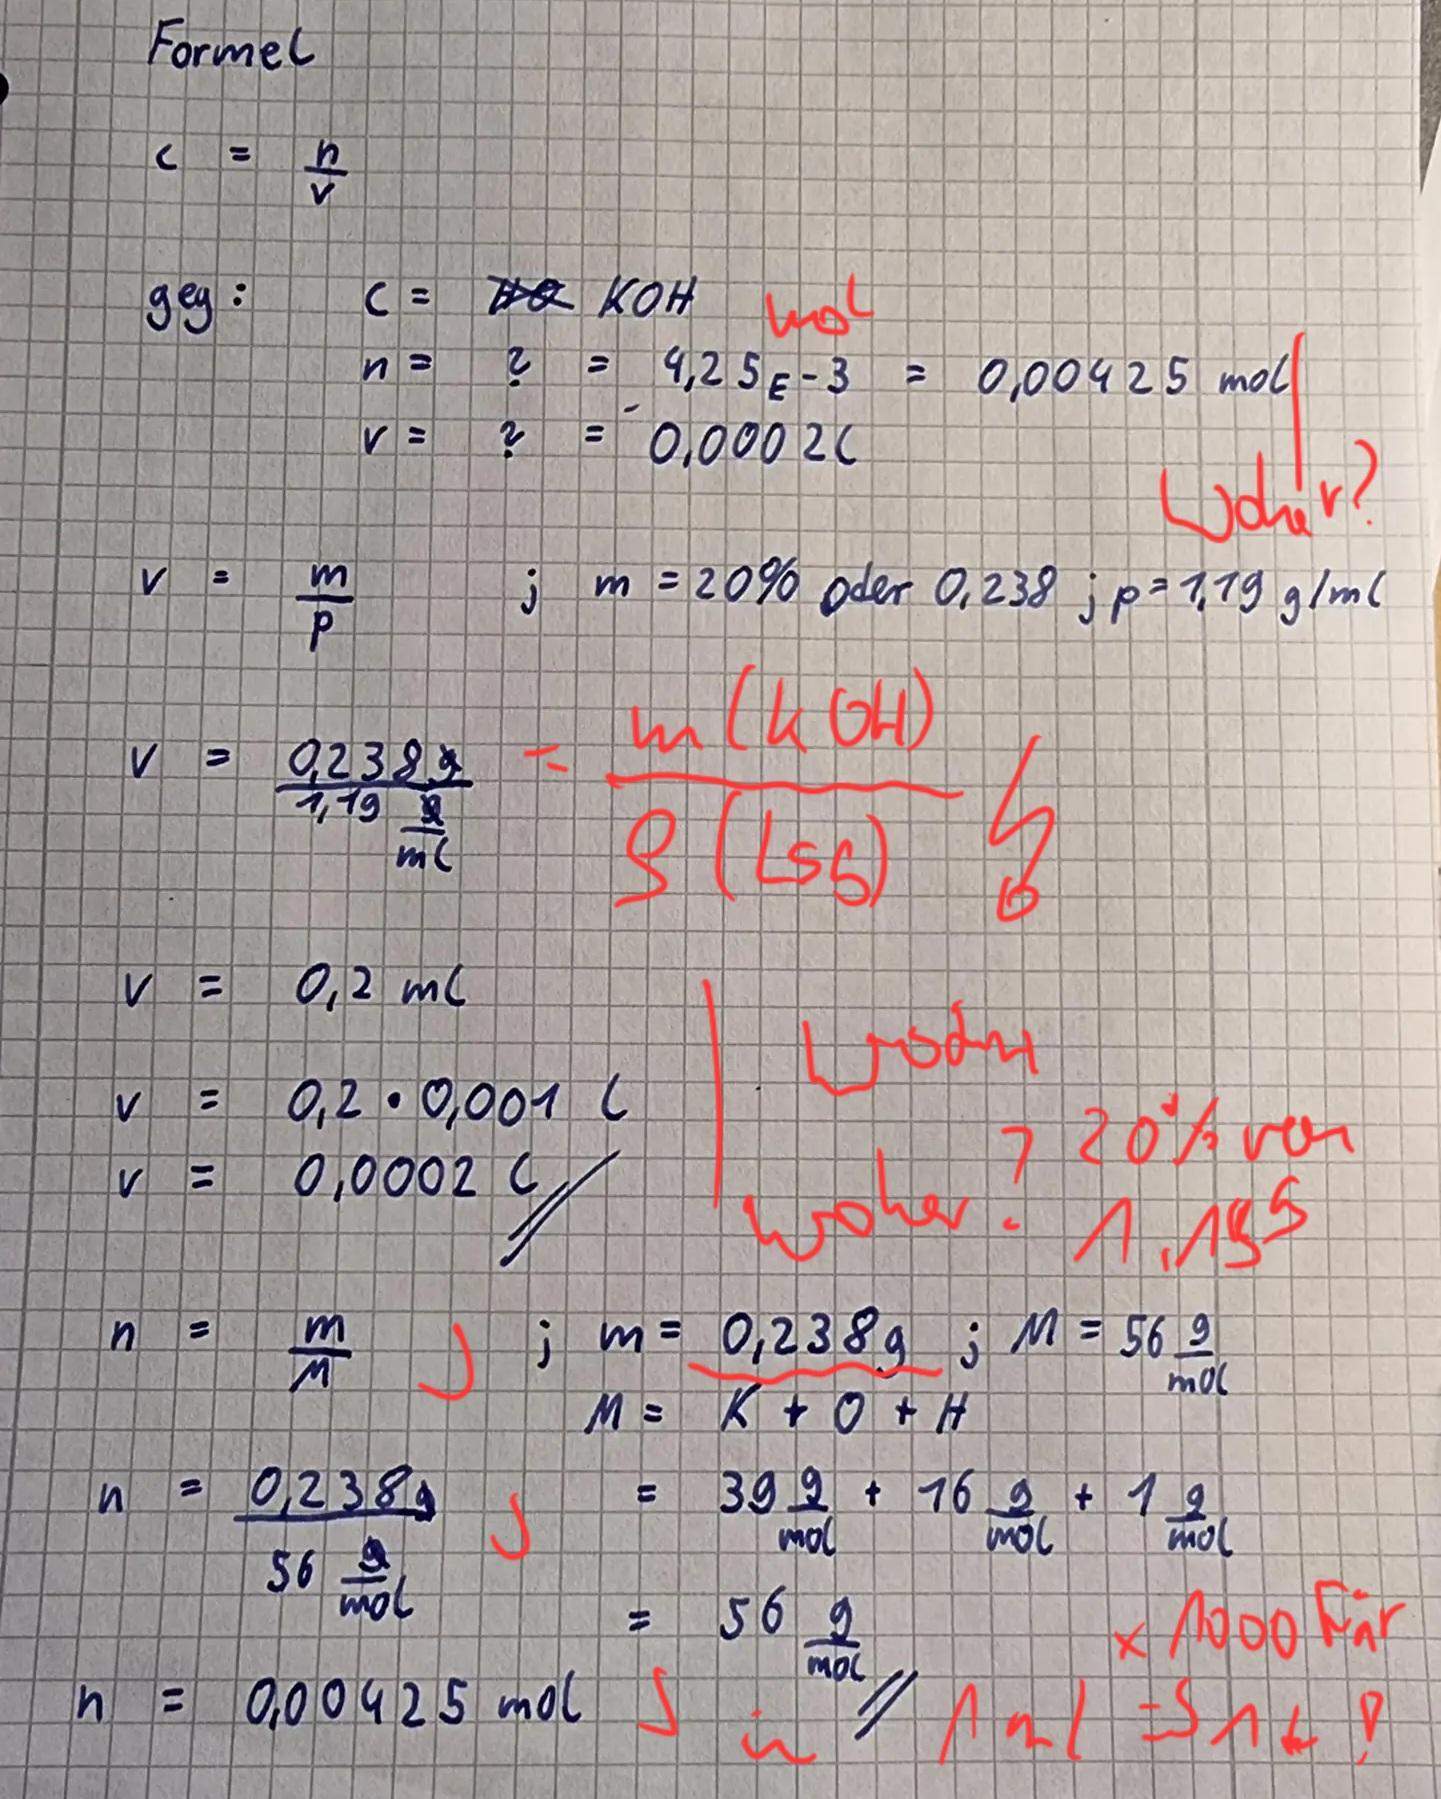 Formel
c = n/v
geg: c = KOH
mol
n = ? = 4,25E-3 = 0,00425 mol
v = ? = 0,0002 l
Woher?
v = m/p ; m = 20% oder 0,238 ; p = 1,19 g/ml
v = 0,238g / 1,19 g/ml = m(KOH) / ρ(Lsg)
v = 0,2 ml
v = 0,2 · 0,001 l
v = 0,0002 l
woher? 20% von
1,19g
n = m/M ; m = 0,238g ; M = 56 g/mol
M = K + O + H
n = 0,238g / 56 g/mol = 39 g/mol + 16 g/mol + 1 g/mol
= 56 g/mol
x 1000 Für
n = 0,00425 mol in 1 ml